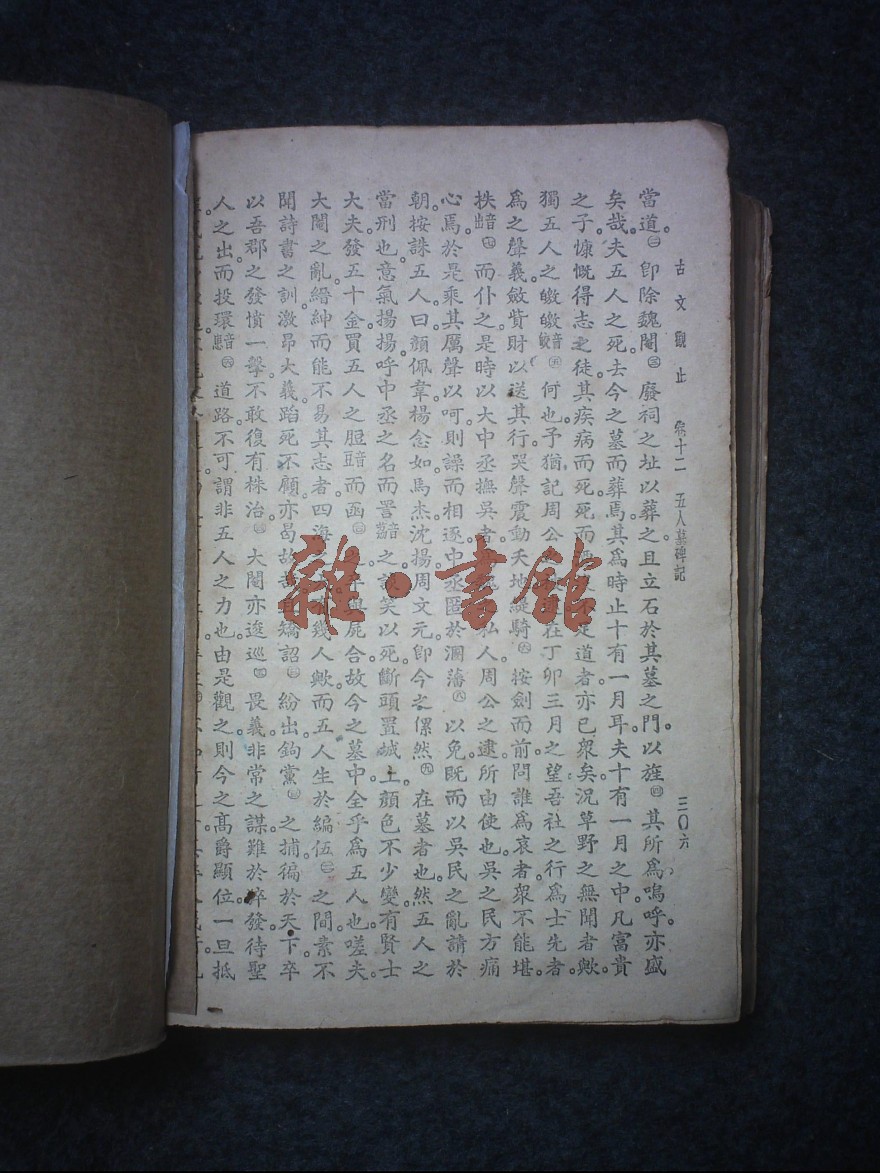 古文觀止 卷十二 五人墓碑記 三〇六
當道。㊁卽除魏閹㊂廢祠之址以葬之。且立石於其墓之門。以旌㊃其所爲。嗚呼。亦盛
矣哉。夫五人之死。去今之墓而葬焉。其爲時止十有一月耳。夫十有一月之中。凡富貴
之子。慷慨得志之徒。其疾病而死。死而不足道者。亦已衆矣。況草野之無聞者歟。
獨五人之皦皦㊄何也。予猶記周公在丁卯三月之望。吾社之行爲士先者。
爲之聲義。斂貲財以送其行。哭聲震動天地。緹騎㊅按劍而前。問誰爲哀者。衆不能堪。
抶㊆而仆之。是時以大中丞撫吳者私人。周公之逮所由使也。吳之民方痛
心焉。於是乘其厲聲以呵。則譟而相逐。中丞匿於溷藩㊇以免。旣而以吳民之亂請於
朝。按誅五人。曰顏佩韋楊念如馬杰沈揚周文元。卽今之傫然㊈在墓者也。然五人之
當刑也。意氣揚揚。呼中丞之名而詈之。談笑以死。斷頭置城上。顏色不少變。有賢士
大夫發五十金。買五人之脰音豆而函卒與屍合。故今之墓中全乎爲五人也。嗟夫。
大閹之亂。縉紳而能不易其志者。四海幾人歟。而五人生於編伍之間。素不
聞詩書之訓。激昂大義。蹈死不顧。亦曷故哉。且矯詔紛出。鉤黨之捕。徧於天下。卒
以吾郡之發憤一擊。不敢復有株治。大閹亦逡巡畏義。非常之謀。難於猝發。待聖
人之出而投環道路。不可謂非五人之力也。由是觀之。則今之高爵顯位。一旦抵
雜·書館